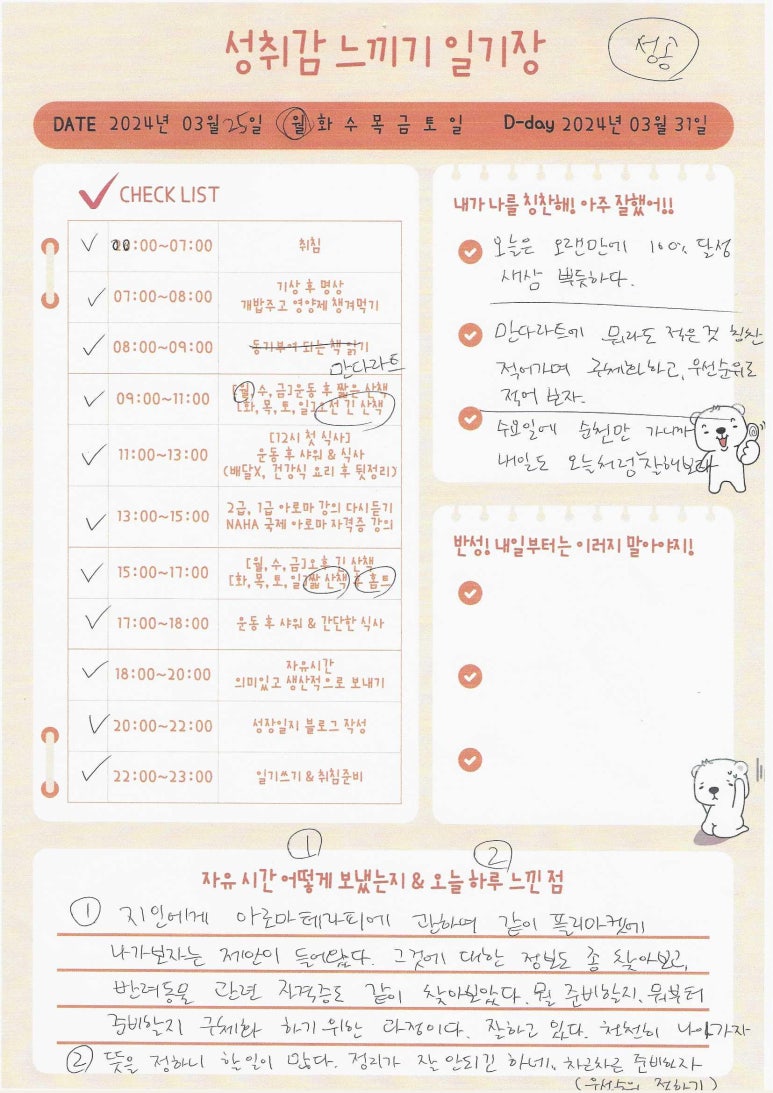 성취감 느끼기 일기장
성공
DATE 2024년 03월 25일 월 화 수 목 금 토 일 D-day 2024년 03월 31일
CHECK LIST
00:00~07:00 취침
07:00~08:00 기상 후 명상
개밥주고 영양제 챙겨먹기
08:00~09:00 동기부여 되는 책 읽기
만다라트
09:00~11:00 [월, 수, 금]운동 후 짧은 산책
[화, 목, 토, 일]오전 긴 산책
11:00~13:00 [12시 첫 식사]
운동 후 샤워 & 식사
(배달X, 건강식 요리 후 뒷정리)
13:00~15:00 2급, 1급 아로마 강의 다시듣기
NAHA 국제 아로마 자격증 강의
15:00~17:00 [월, 수, 금]오후 긴 산책
[화, 목, 토, 일]짧 산책 후 홈트
17:00~18:00 운동 후 샤워 & 간단한 식사
18:00~20:00 자유시간
의미있고 생산적으로 보내기
20:00~22:00 성장일지 블로그 작성
22:00~23:00 일기쓰기 & 취침준비
내가 나를 칭찬해! 아주 잘했어!!
오늘은 오랜만에 100% 달성
새삼 뿌듯하다.
만다라트에 뭐라도 적은 것 칭찬
적어가며 구체화하고, 우선순위로
적어 보자.
수요일에 순천만 가니까
내일도 오늘처럼 잘해보자
반성! 내일부터는 이러지 말아야지!
① ②
자유 시간 어떻게 보냈는지 & 오늘 하루 느낀 점
① 지인에게 아로마테라피에 관하여 같이 플리마켓에
나가보자는 제안이 들어왔다. 그것에 대한 정보도 좀 찾아보고,
반려동물 관련 자격증도 같이 찾아보았다. 뭘 준비할지, 뭐부터
준비할지 구체화 하기 위한 과정이다. 잘하고 있다. 천천히 나아가자
② 뜻을 정하니 할 일이 많다. 정리가 잘 안되긴 하네. 차근차근 준비하자
(우선순위 정하기)